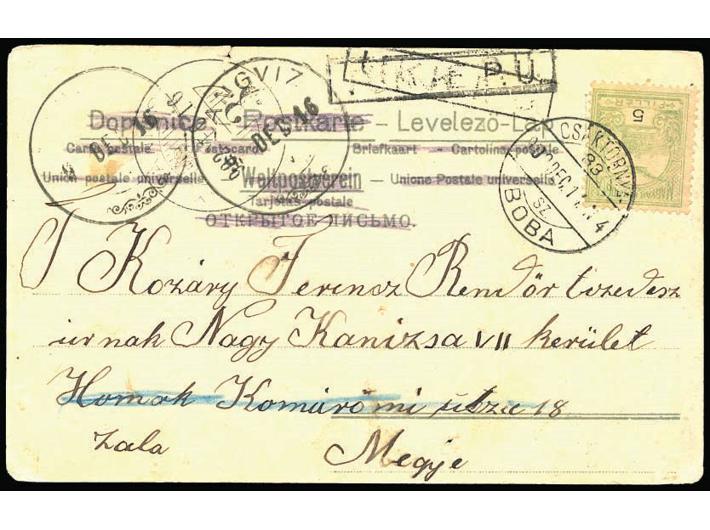 P. U.
FILLÉR
5
Levelező-Lap
Carte postale – Postcard – Briefkaart – Cartolina postale
Union postale universelle – Weltpostverein – Unione Postale universelle
Tarjetas postale
ОТКРЫТОЕ ПИСЬМО.
CSÁKTORNYA
83
SZ
BOBA
Kozáry Ferencz Rendőr tizedesz
úrnak Nagy Kanizsa VII kerület
Homok Komáromi útza 18
Zala Megye